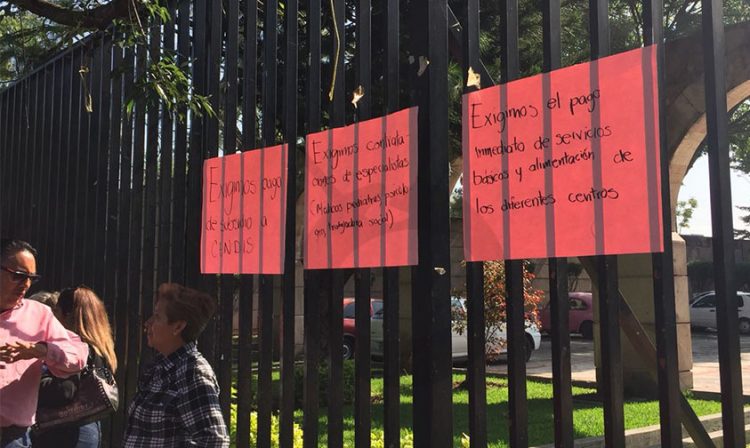 Exigimos pago
de subsidio a
CENDIS
Exigimos contrata-
ciones de especialistas
(Medicos pediatras psicolo-
gos, trabajadora social)
Exigimos el pago
Inmediato de servicios
básicos y alimentación de
los diferentes centros